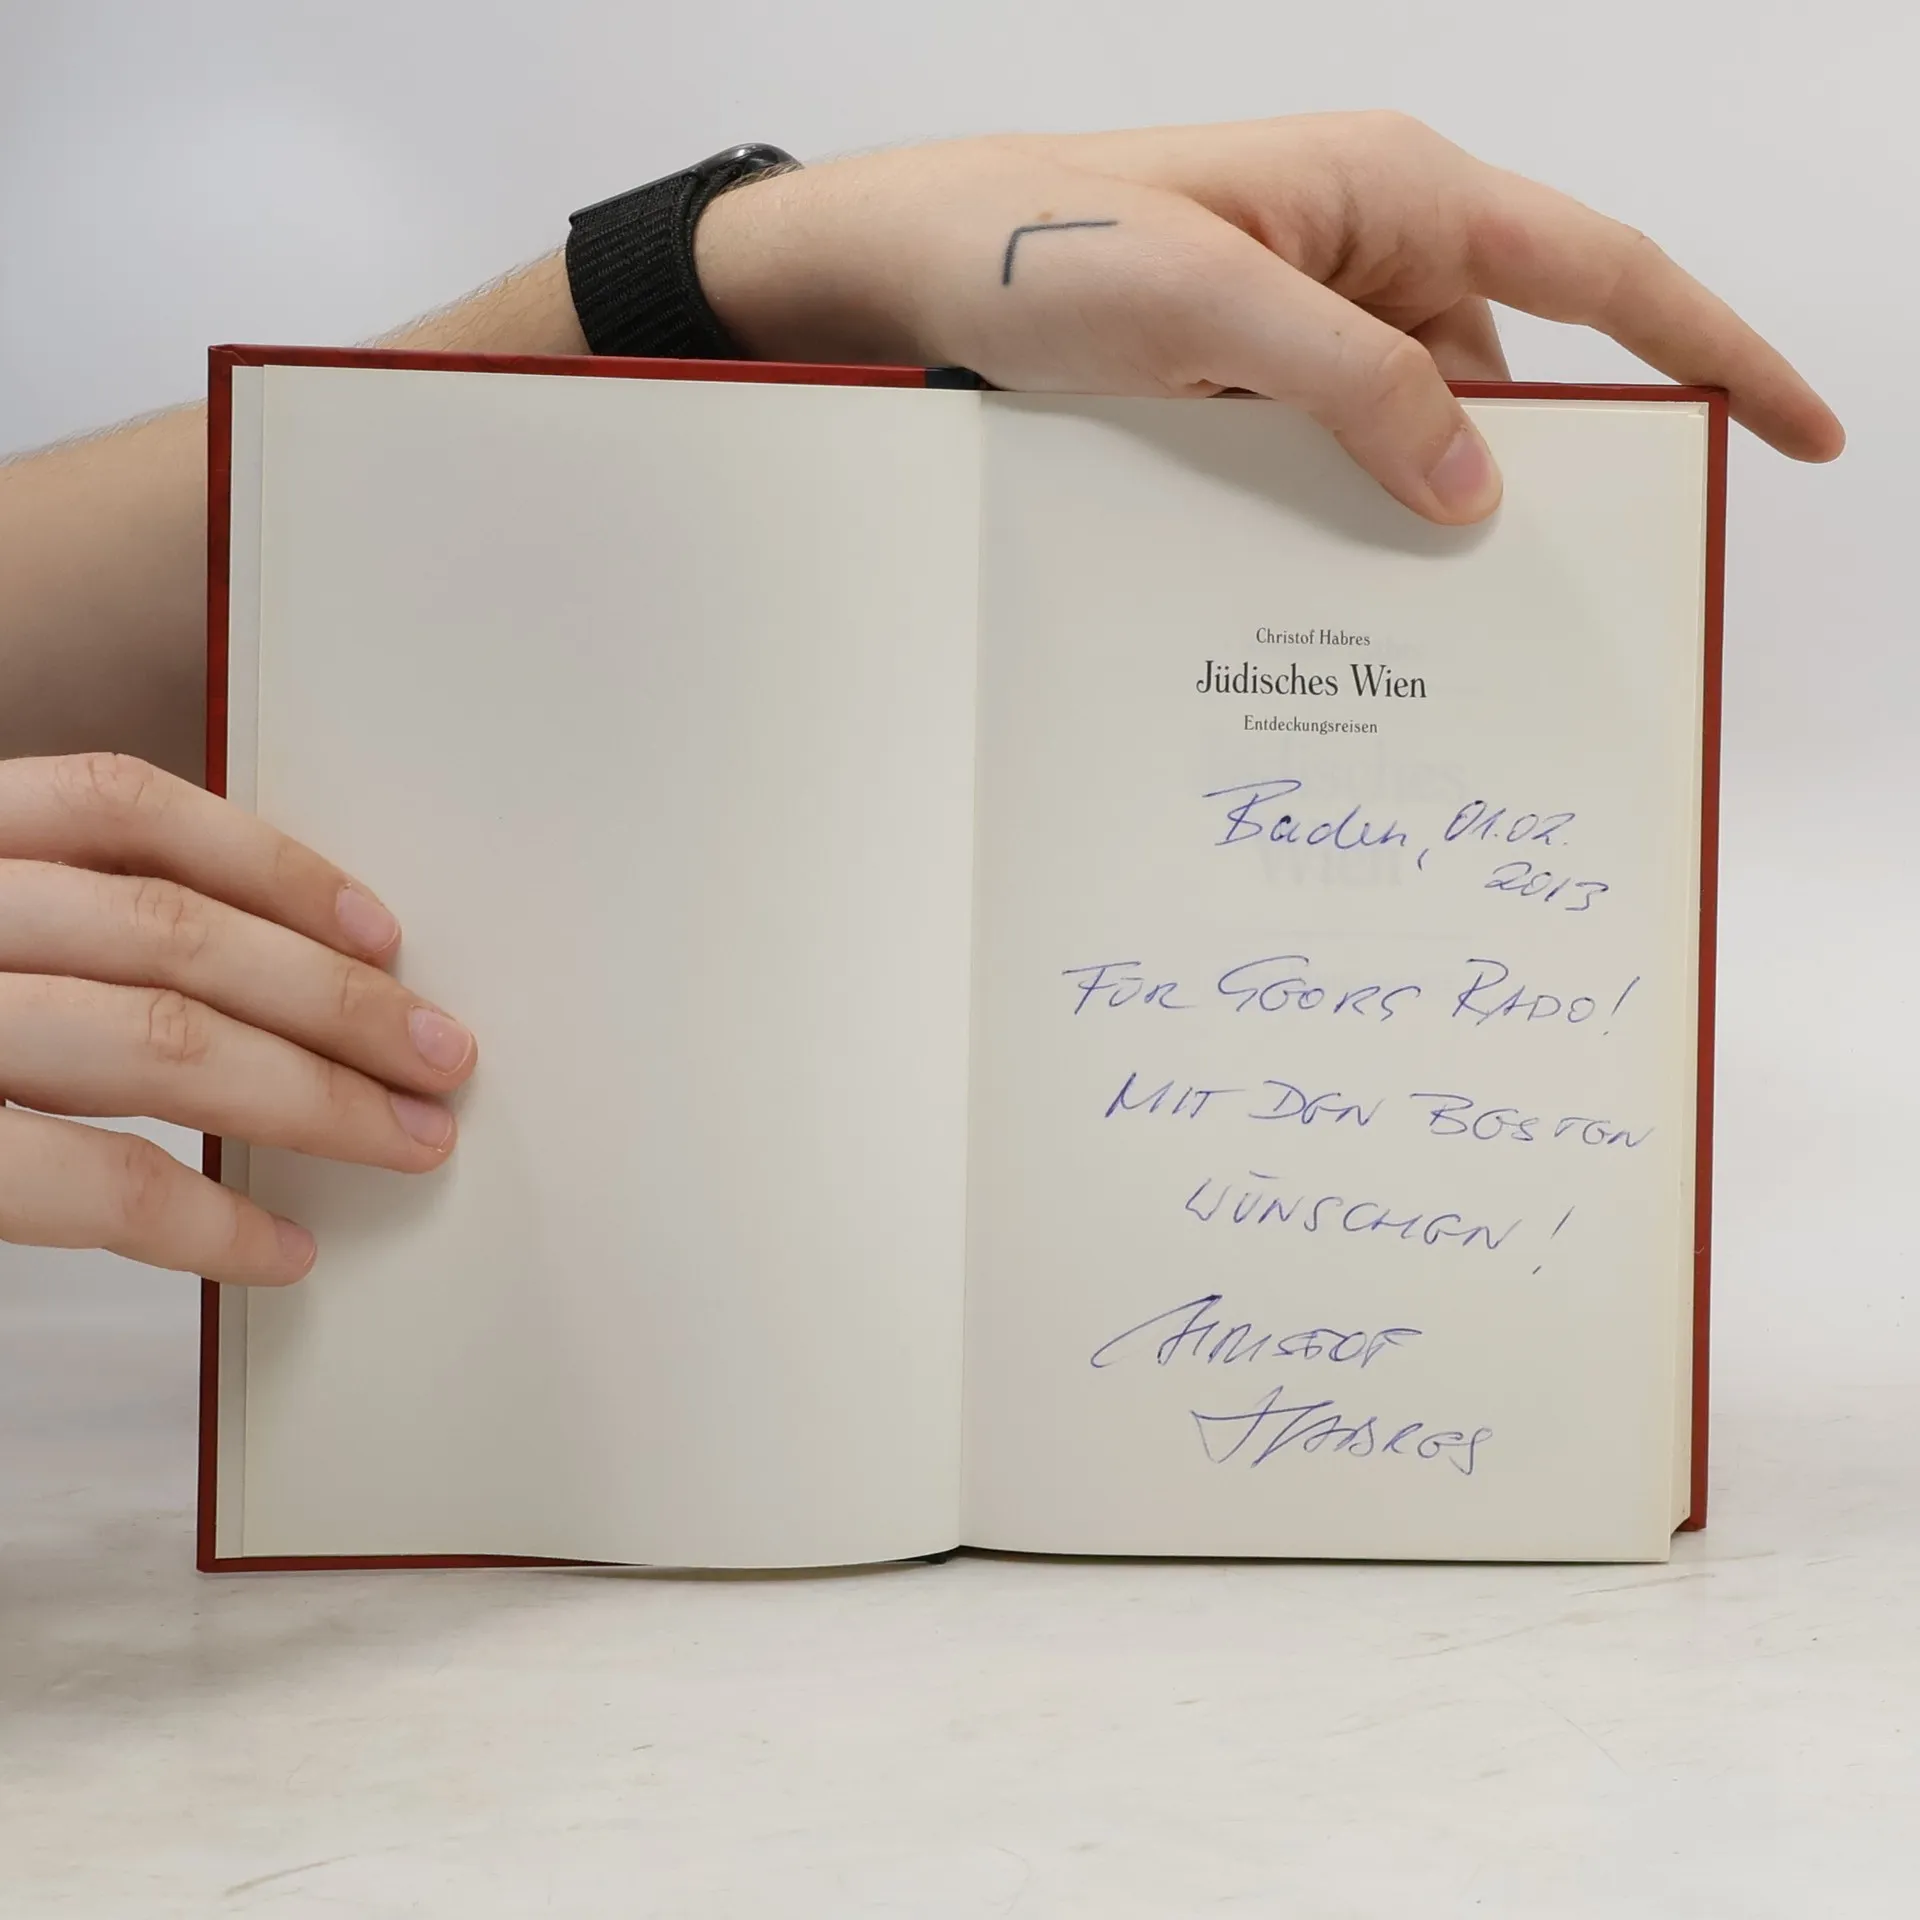 Christof Habres
Jüdisches Wien
Entdeckungsreisen
Baden, 01.02.
2013
FÜR GEORG RADO!
MIT DEN BESTEN
WÜNSCHEN!
CHRISTOF
HABRES